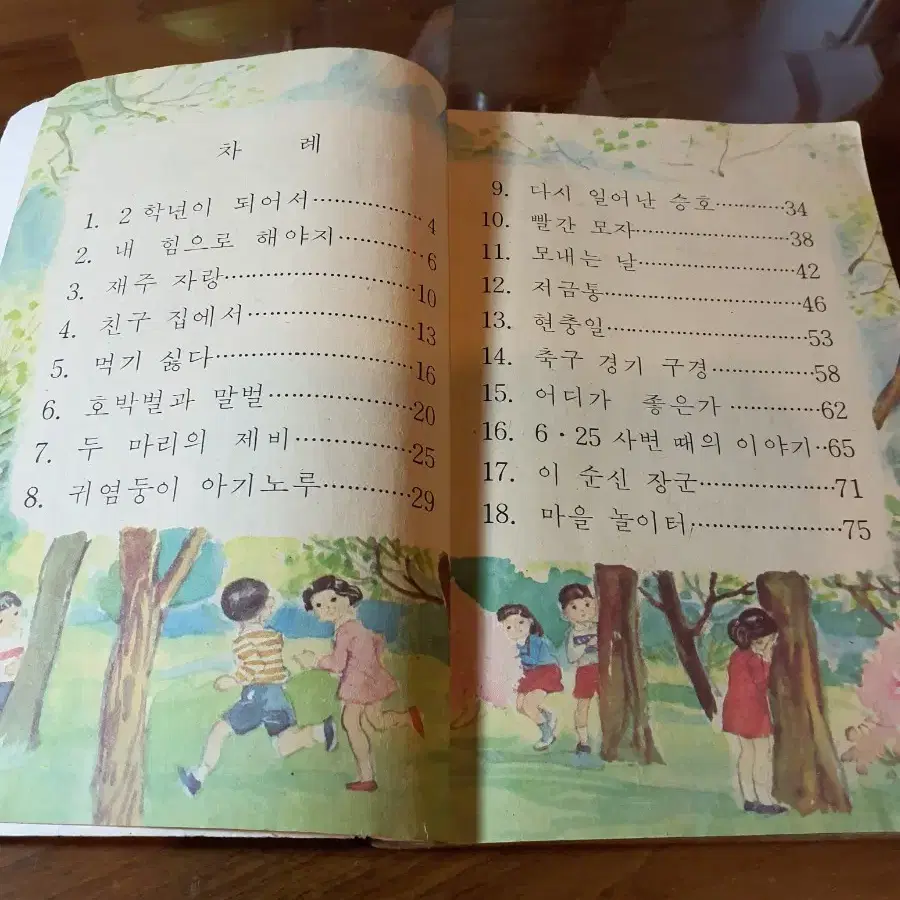 차 례
1. 2학년이 되어서 ………… 4
2. 내 힘으로 해야지 ………… 6
3. 재주 자랑 ………… 10
4. 친구 집에서 ………… 13
5. 먹기 싫다 ………… 16
6. 호박벌과 말벌 ………… 20
7. 두 마리의 제비 ………… 25
8. 귀염둥이 아기노루 ………… 29
9. 다시 일어난 승호 ………… 34
10. 빨간 모자 ………… 38
11. 모내는 날 ………… 42
12. 저금통 ………… 46
13. 현충일 ………… 53
14. 축구 경기 구경 ………… 58
15. 어디가 좋은가 ………… 62
16. 6·25 사변 때의 이야기 ‥ 65
17. 이 순신 장군 ………… 71
18. 마을 놀이터 ………… 75